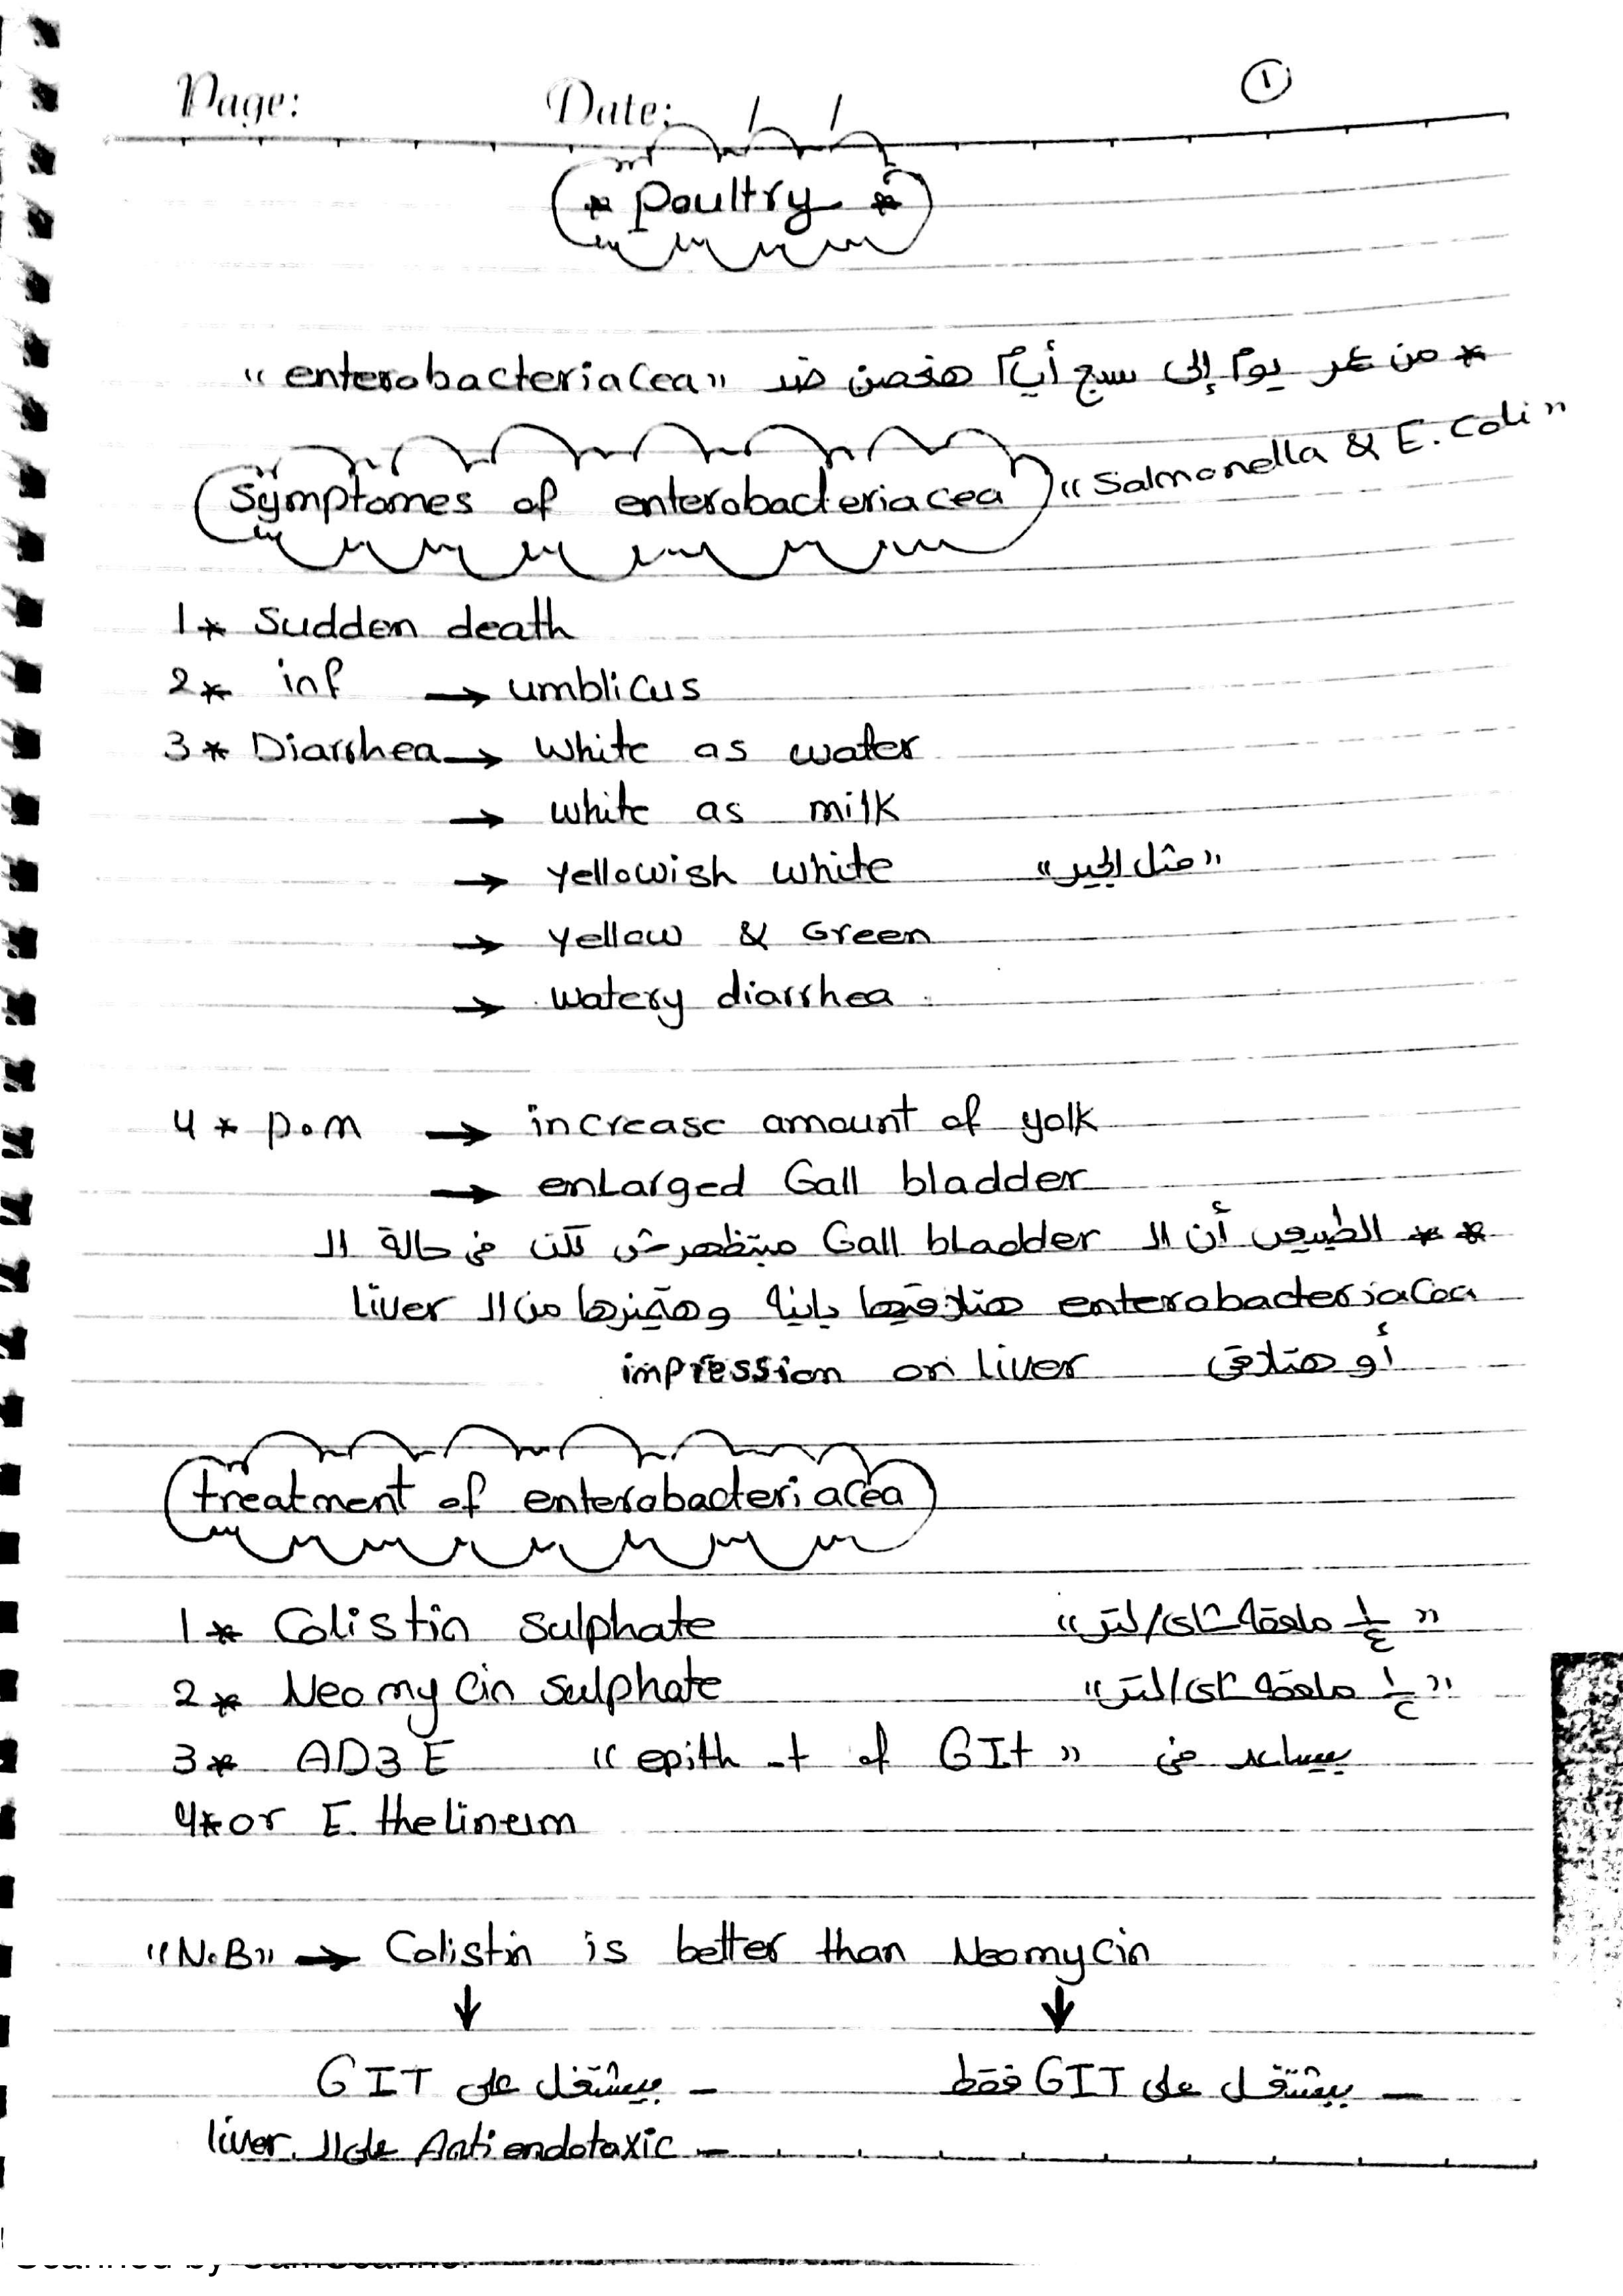 Page: Date: / / ①
* poultry *
* من عمر يوم إلى سبع أيام هنحصن ضد "enterobacteriacea"
"Salmonella & E. Coli"
Symptomes of enterobacteriacea
1* Sudden death
2* inf → umblicus
3* Diarrhea → White as water
→ white as milk
→ yellowish white "مثل الجير"
→ yellow & Green
→ watery diarrhea
4* p.m → increase amount of yolk
→ enlarged Gall bladder
** الطبيعى أن الـ Gall bladder مبتظهرش لكن فى حالة الـ
enterobacteriacea هتلاقيها باينه وهتميزها من الـ liver
أو هتلاقى impression on liver
treatment of enterobacteriacea
1* Colistin sulphate "١/٤ ملعقه شاى/لتر"
2* Neomycin sulphate "١/٤ ملعقه شاى/لتر"
3* AD3E "epith -t of GIt" بيساعد فى
4* or E.
"N.B" → Colistin is better than Neomycin
↓ ↓
- بيشتغل على GIT - بيشتغل على GIT فقط
- Anti endotoxic على الـ liver.
Scanned by CamScanner